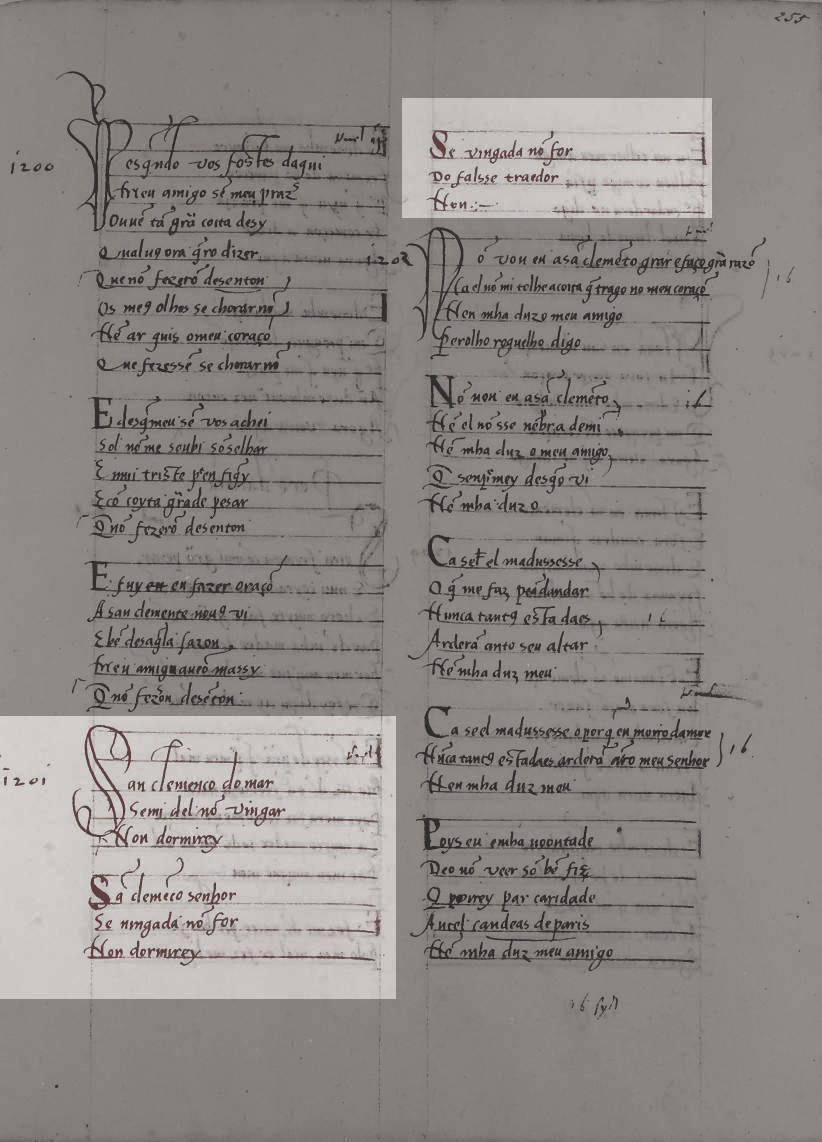 255
1200
Pesq̄ndo vos fostes daqui
Meu amigo sē meu praz̄
Ouuē tā grā coita desy
Qualug ora q̄ro dizer
Que nō fezerō desenton
Os me9 olhos se chorar nō
Nē ar quis o meu coraçō
Que fezessē se chorar nō
E desq̄meu sē vos achei
Sol nō me soubi cōselhar
E mui triste
Ecō coyta grāde pesar
Q̄ nō fezerō desenton
E fuy en eu fazer oraçō
A san clemente nou9 vi
E bē
Meu amig
Q̄ nō fezōn desētōn
1201
San clemenco do mar
Semi del nō vingar
Non dormirey
Sā clemēco senhor
Se uingada nō for
Non dormirey
Se vingada nō for
Do falsse traedor
Non:—
1202
Nō vou eu a sā clemēto orar e faço grā razō
Ca el nō mi tolhe a coita q̄ trago no meu coraçō
Nen mha duz o meu amigo
Pero lho rogu e lho digo
16
Nō uou eu a sā clemēto
Nē el nō sse nēbra de mi
Nē mha duz o meu amigo
Q̄ senpr amey desq̄o vi
Nē mha duz o
16
Ca se el madussesse
O q̄ me faz pēadandar
Nunca tant9 estadaes
Arderā anto seu altar
Nē mha duz meu
16
Ca se el madussesse o por q̄ eu moiro damore
Nūca tant9 estadaes arderā āto meu senhor
Nen mha duz meu
16
Poys eu e mha uoontade
Deo nō veer sō bē fiz
Q porrey par caridade
Antel candeas de paris
Nē mha duz meu amigo